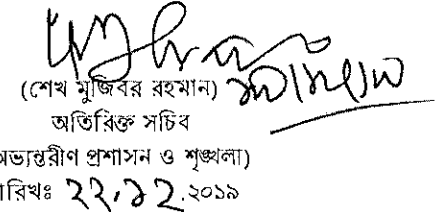 (শেখ মুজিবর রহমান)
অতিরিক্ত সচিব
অভ্যন্তরীণ প্রশাসন ও শৃঙ্খলা)
রিখঃ ২২.১২.২০১৯